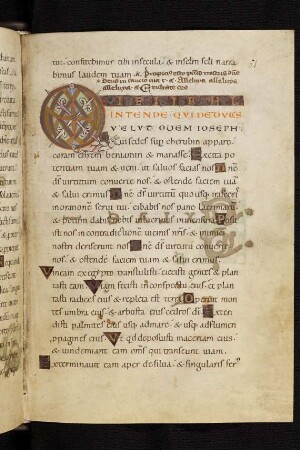 tui confitebimur tibi insecula & insēlm sēli narra
bimus laudem tuam
QUI REGIS ISRAHEL
INTENDE QVI DEDVCIS
VELVT OVEM IOSEPH
Qui sedes sup cherubin appare
coram effrem beniamin & manasse; Excita po
tentiam tuam & ueni. ut saluos facias nos
ds uirtutum conuerte nos. & ostende faciem tuā
& salui erimus Dne ds uirtutum usqquo irasceris
inorationē serui tui. cibabis nos pane lacrimarū
& potum dabis nobis inlacrimis inmensura Po
sti nos in contradictionē uicinis nrīs. & inimici
nostri deriserunt nos Dne ds uirtutū conuerte
nos. & ostende faciem tuam & salui erimus
Vineam exegypto transtulisti. eiecisti gentes & plan
tasti eam
tasti radices eius & repleta est terra Operuit mon
tes umbra eius & arbusta eius cedros dī Exten
disti palmites eius usq admare & usq adflumen
ppagines eius Vt qd deposuisti maceriam eius
& uindemiant eam oms qui transeunt uiam
Exterminauit eam aper desilua & singularis fer